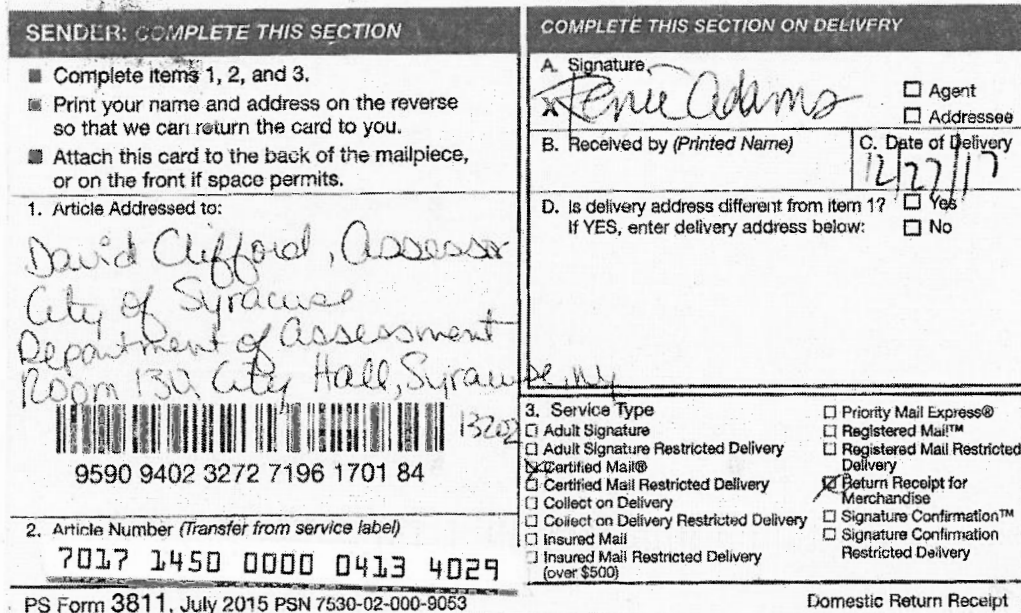 SENDER: COMPLETE THIS SECTION
■ Complete items 1, 2, and 3.
■ Print your name and address on the reverse
so that we can return the card to you.
■ Attach this card to the back of the mailpiece,
or on the front if space permits.
1. Article Addressed to:
David Clifford, Assessor
City of Syracuse
Department of Assessment
Room 130, City Hall, Syracuse, NY
13202
9590 9402 3272 7196 1701 84
2. Article Number (Transfer from service label)
7017 1450 0000 0413 4029
PS Form 3811, July 2015 PSN 7530-02-000-9053
COMPLETE THIS SECTION ON DELIVERY
A. Signature
X Renie Adams
☐ Agent
☐ Addressee
B. Received by (Printed Name)
C. Date of Delivery
12/27/17
D. Is delivery address different from item 1? ☐ Yes
If YES, enter delivery address below: ☐ No
3. Service Type
☐ Adult Signature
☐ Adult Signature Restricted Delivery
☒ Certified Mail®
☐ Certified Mail Restricted Delivery
☐ Collect on Delivery
☐ Collect on Delivery Restricted Delivery
☐ Insured Mail
☐ Insured Mail Restricted Delivery
(over $500)
☐ Priority Mail Express®
☐ Registered Mail™
☐ Registered Mail Restricted
Delivery
☒ Return Receipt for
Merchandise
☐ Signature Confirmation™
☐ Signature Confirmation
Restricted Delivery
Domestic Return Receipt